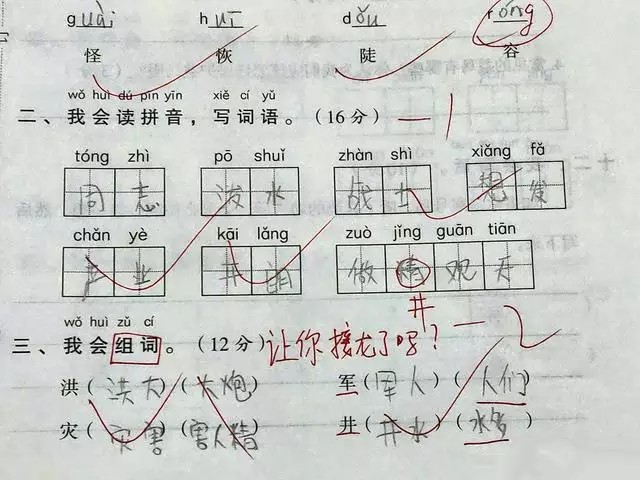 guài huī dǒu róng
怪 恢 陡 容
wǒ huì dú pīn yīn xiě cí yǔ
二、我会读拼音，写词语。(16分) 一1
tóng zhì pō shuǐ zhàn shì xiǎng fǎ
同志 泼水 战士 想发
chǎn yè kāi lǎng zuò jǐng guān tiān
产业 开朗 做精观天
井
wǒ huì zǔ cí
三、我会组词。(12分) 让你接龙了吗? 一2
洪(洪大)(大炮) 军(军人)(人们)
灾(灾害)(害人精) 井(井水)(水多)